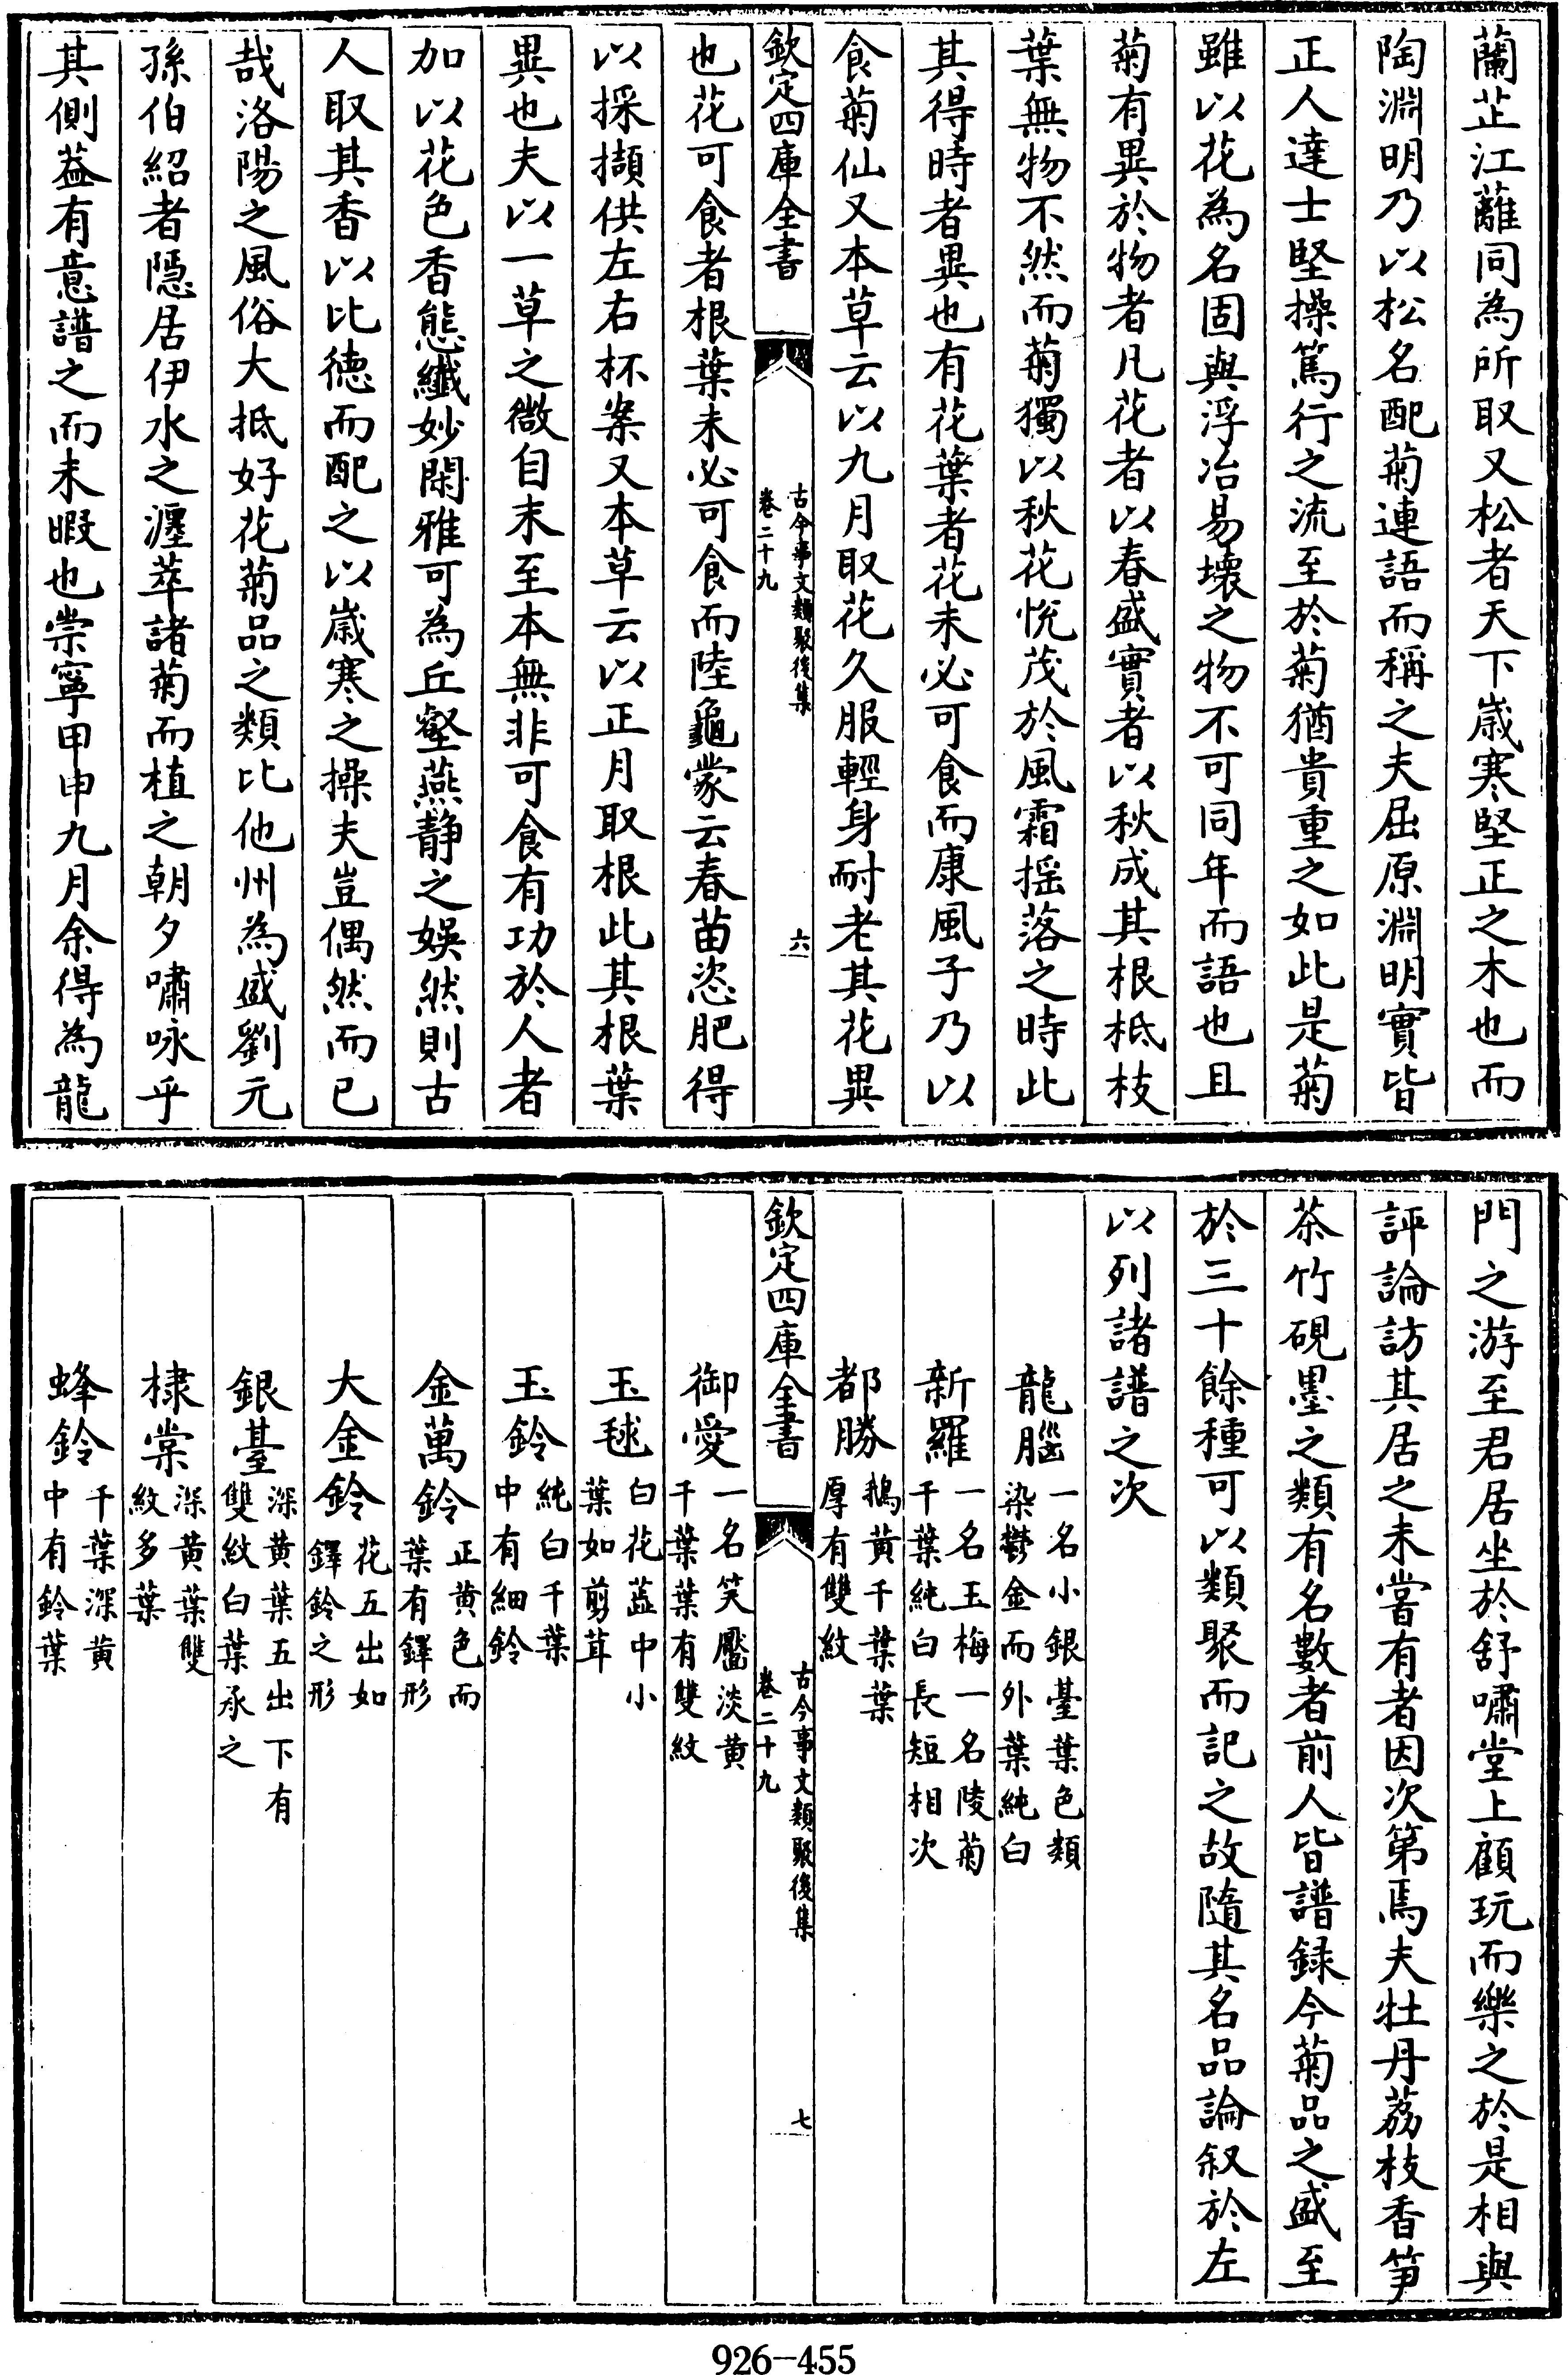 蘭芷江蘺同為所取又松者天下歳寒堅正之木也而
陶淵明乃以松名配菊連語而稱之夫屈原淵明實皆
正人達士堅操篤行之流至於菊猶貴重之如此是菊
雖以花為名固與浮冶易壞之物不可同年而語也且
菊有異於物者凡花者以春盛實者以秋成其根柢枝
葉無物不然而菊獨以秋花悅茂於風霜揺落之時此
其得時者異也有花葉者花未必可食而康風子乃以
食菊仙又本草云以九月取花久服輕身耐老其花異
欽定四庫全書
古今事文類聚後集
卷二十九
六
也花可食者根葉未必可食而陸龜蒙云春苗恣肥得
以採擷供左右杯案又本草云以正月取根此其根葉
異也夫以一草之微自末至本無非可食有功於人者
加以花色香態纖妙閑雅可為丘壑燕静之娛然則古
人取其香以比徳而配之以歳寒之操夫豈偶然而已
哉洛陽之風俗大抵好花菊品之類比他州為盛劉元
孫伯紹者隠居伊水之瀍萃諸菊而植之朝夕嘯咏乎
其側葢有意譜之而未暇也崇寧甲申九月余得為龍
門之游至君居坐於舒嘯堂上顧玩而樂之於是相與
評論訪其居之未嘗有者因次第焉夫牡丹荔枝香笋
茶竹硯墨之類有名數者前人皆譜録今菊品之盛至
於三十餘種可以類聚而記之故隨其名品論叙於左
以列諸譜之次
龍腦 一名小銀臺葉色類
染鬱金而外葉純白
新羅 一名玉梅一名陵菊
千葉純白長短相次
都勝 鵝黄千葉葉
厚有雙紋
欽定四庫全書
古今事文類聚後集
卷二十九
七
御愛 一名笑靨淡黄
千葉葉有雙紋
玉毬 白花葢中小
葉如剪茸
玉鈴 純白千葉
中有細鈴
金萬鈴 正黄色而
葉有鐸形
大金鈴 花五出如
鐸鈴之形
銀臺 深黄葉五出下有
雙紋白葉承之
棣棠 深黄葉雙
紋多葉
蜂鈴 千葉深黄
中有鈴葉
926-455